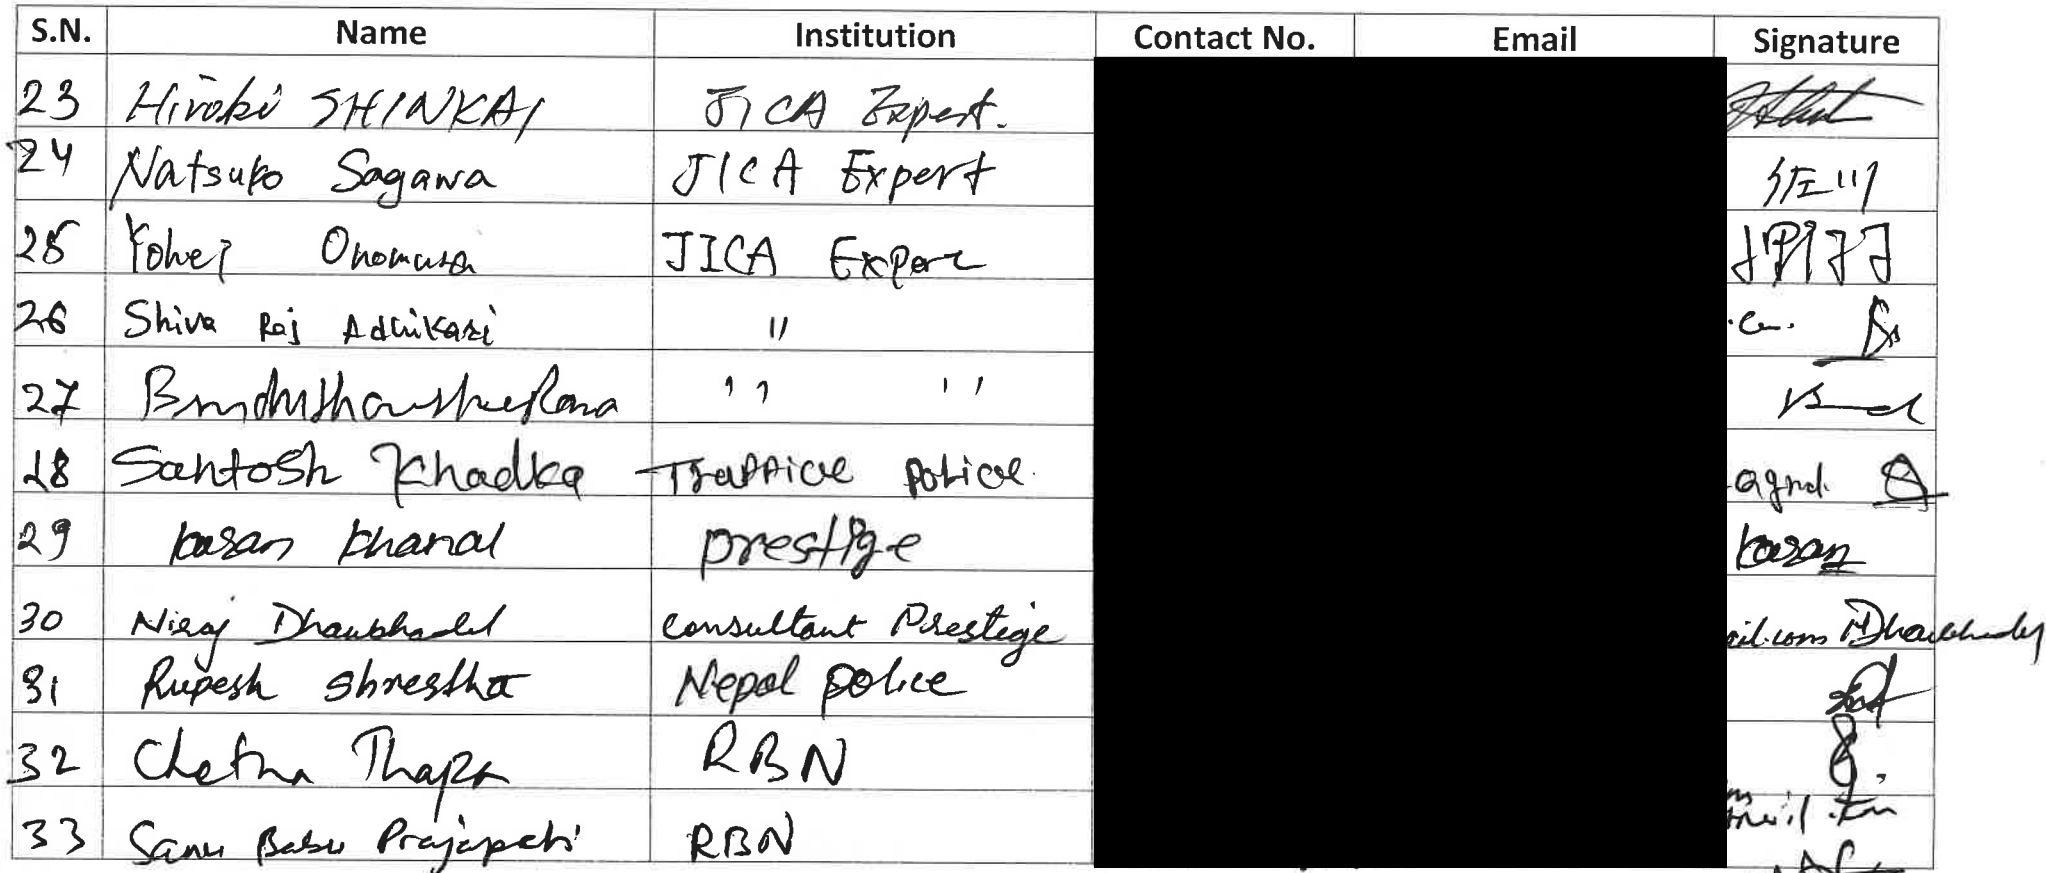 S.N. Name Institution Contact No. Email Signature
23 Hiroki SHINKAI JICA Expert.
24 Natsuko Sagawa JICA Expert 佐川
25 Yohei Onomura JICA Expert
26 Shiva Raj Adhikari "
27 " "
28 Santosh Khadka Traffice police.
29 karan khanal prestige karan
30 Niraj Dhaubhadel consultant Prestige ail.com Dhaubhadel
31 Rupesh Shrestha Nepal police
32 Chetna Thapa RBN
33 Sanu Babu Prajapati RBN